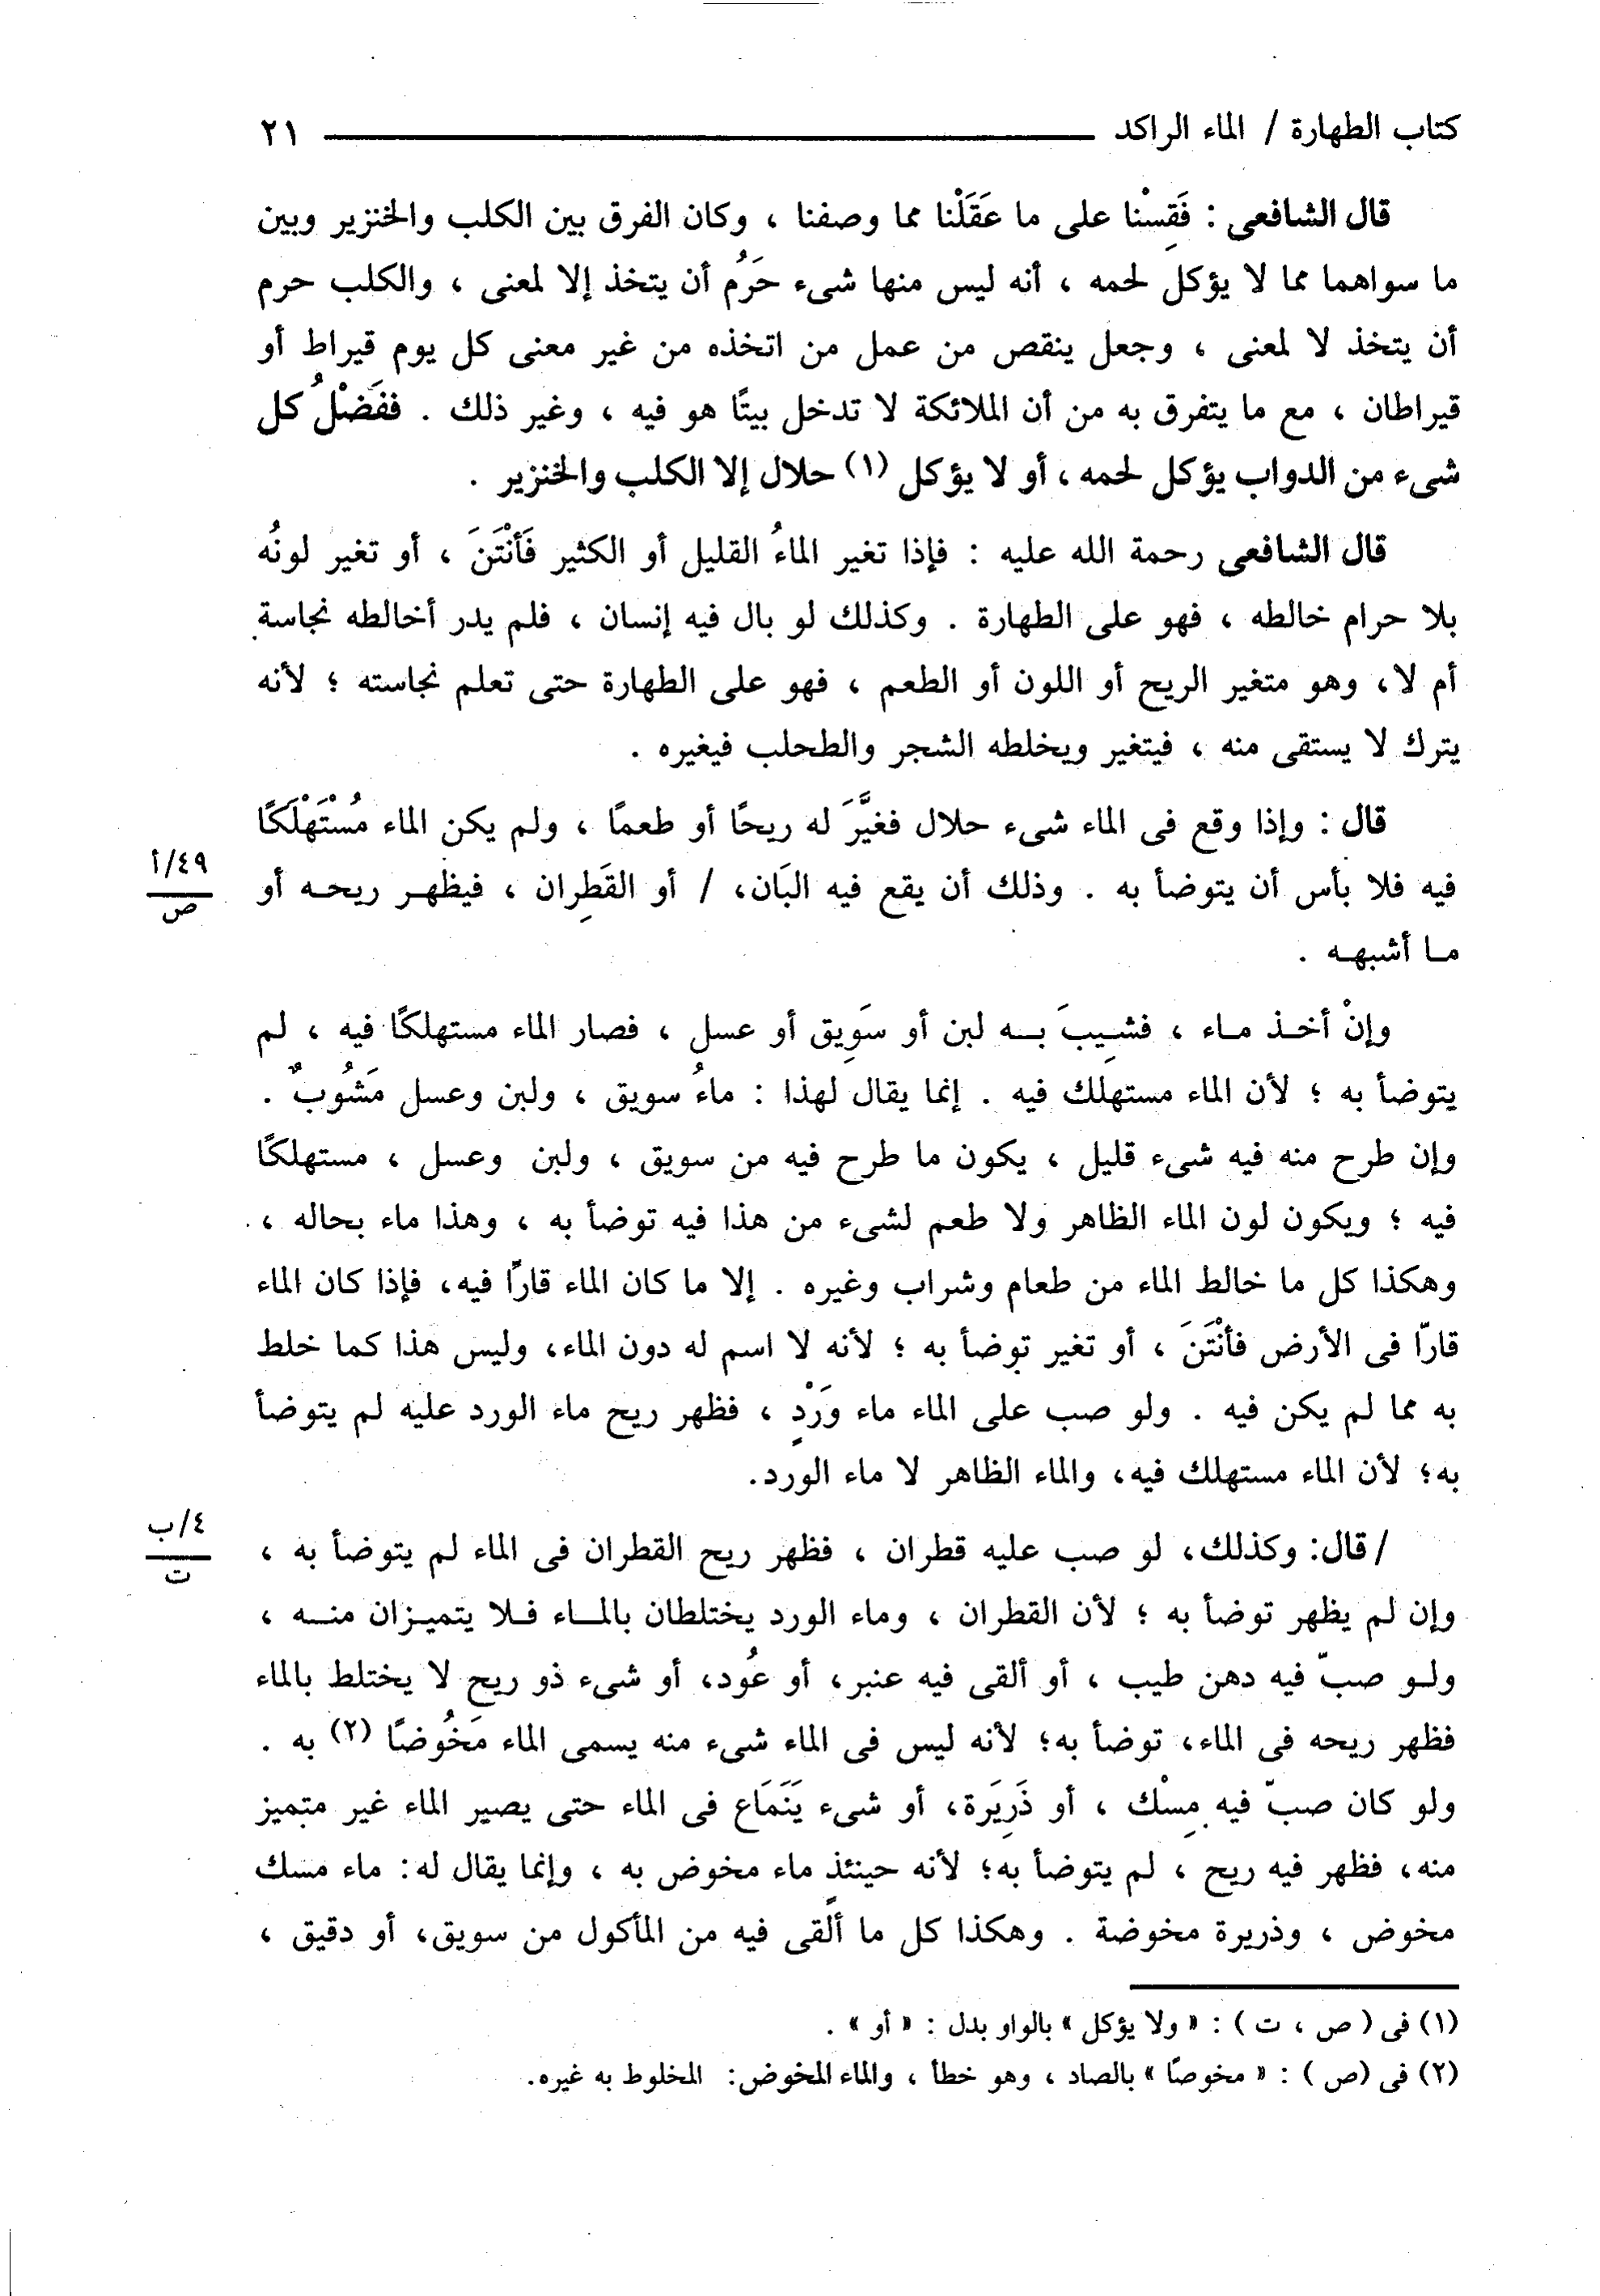 كتاب الطهارة / الماء الراكد ــــــــ ٢١
قال الشافعى : فَقِسْنا على ما عَقَلْنا مما وصفنا ، وكان الفرق بين الكلب والخنزير وبين
ما سواهما مما لا يؤكل لحمه ، أنه ليس منها شىء حَرُم أن يتخذ إلا لمعنى ، والكلب حرم
أن يتخذ لا لمعنى ، وجعل ينقص من عمل من اتخذه من غير معنى كل يوم قيراط أو
قيراطان ، مع ما يتفرق به من أن الملائكة لا تدخل بيتًا هو فيه ، وغير ذلك . ففَضْلُ كل
شىء من الدواب يؤكل لحمه ، أو لا يؤكل (١) حلال إلا الكلب والخنزير .
قال الشافعى رحمة الله عليه : فإذا تغير الماءُ القليل أو الكثير فَأَنْتَنَ ، أو تغير لونُه
بلا حرام خالطه ، فهو على الطهارة . وكذلك لو بال فيه إنسان ، فلم يدر أخالطه نجاسة
أم لا، وهو متغير الريح أو اللون أو الطعم ، فهو على الطهارة حتى تعلم نجاسته ؛ لأنه
يترك لا يستقى منه ، فيتغير ويخلطه الشجر والطحلب فيغيره .
قال : وإذا وقع فى الماء شىء حلال فغيَّرَ له ريحًا أو طعمًا ، ولم يكن الماء مُسْتَهْلَكًا
فيه فلا بأس أن يتوضأ به . وذلك أن يقع فيه البَان، / أو القَطِران ، فيظهر ريحه أو
٤٩/أ
ص
ما أشبهه .
وإنْ أخذ ماء ، فشِيبَ به لبن أو سَوِيق أو عسل ، فصار الماء مستهلكًا فيه ، لم
يتوضأ به ؛ لأن الماء مستهلك فيه . إنما يقال لهذا : ماءُ سويق ، ولبن وعسل مَشُوبٌ .
وإن طرح منه فيه شىء قليل ، يكون ما طرح فيه من سويق ، ولبن وعسل ، مستهلكًا
فيه ؛ ويكون لون الماء الظاهر ولا طعم لشىء من هذا فيه توضأ به ، وهذا ماء بحاله ،
وهكذا كل ما خالط الماء من طعام وشراب وغيره . إلا ما كان الماء قارًّا فيه، فإذا كان الماء
قارّا فى الأرض فأنْتَنَ ، أو تغير توضأ به ؛ لأنه لا اسم له دون الماء، وليس هذا كما خلط
به مما لم يكن فيه . ولو صب على الماء ماء وَرْدٍ ، فظهر ريح ماء الورد عليه لم يتوضأ
به؛ لأن الماء مستهلك فيه، والماء الظاهر لا ماء الورد.
/ قال: وكذلك، لو صب عليه قطران ، فظهر ريح القطران فى الماء لم يتوضأ به ،
٤/ب
ت
وإن لم يظهر توضأ به ؛ لأن القطران ، وماء الورد يختلطان بالماء فلا يتميزان منه ،
ولو صبّ فيه دهن طيب ، أو ألقى فيه عنبر، أو عُود، أو شىء ذو ريح لا يختلط بالماء
فظهر ريحه فى الماء، توضأ به؛ لأنه ليس فى الماء شىء منه يسمى الماء مَخُوضًا (٢) به .
ولو كان صبّ فيه مِسْك ، أو ذَرِيَرة، أو شىء يَنَمَاع فى الماء حتى يصير الماء غير متميز
منه، فظهر فيه ريح ، لم يتوضأ به؛ لأنه حينئذٍ ماء مخوض به ، وإنما يقال له: ماء مسك
مخوض ، وذريرة مخوضة . وهكذا كل ما ألقى فيه من المأكول من سويق، أو دقيق ،
(١) فى ( ص ، ت ) : « ولا يؤكل » بالواو بدل : « أو » .
(٢) فى (ص ) : « مخوصًا » بالصاد ، وهو خطأ ، والماء المخوض: المخلوط به غيره.